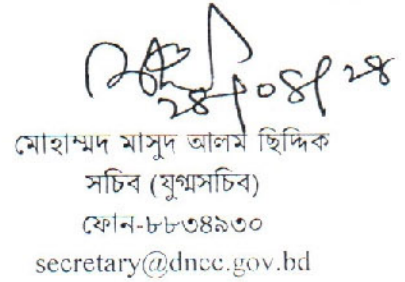 ২৪/০৪/২৪
মোহাম্মদ মাসুদ আলম ছিদ্দিক
সচিব (যুগ্মসচিব)
ফোন-৮৮৩৪৯৩০
secretary@dncc.gov.bd